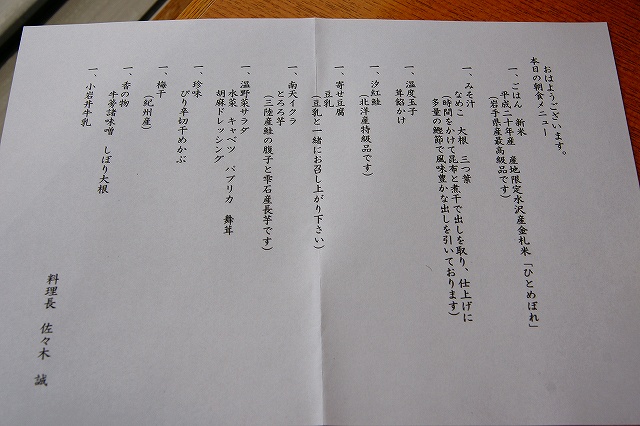 おはようございます。
本日の朝食メニュー
一、ごはん　新米
平成二十年産　産地限定水沢産金札米「ひとめぼれ」
（岩手県産最高級品です）
一、みそ汁
なめこ　大根　三つ葉
（時間をかけて昆布と煮干で出しを取り、仕上げに
多量の鰹節で風味豊かな出しを引いております）
一、温度玉子
茸餡かけ
一、汐紅鮭
（北洋産特級品です）
一、寄せ豆腐
豆乳
（豆乳と一緒にお召し上がり下さい）
一、南天イクラ
とろろ芋
（三陸産鮭の腹子と雫石産長芋です）
一、温野菜サラダ
水菜　キャベツ　パプリカ　舞茸
胡麻ドレッシング
一、珍味
ぴり辛切干めかぶ
一、梅干
（紀州産）
一、香の物
牛蒡諸味噌　しぼり大根
一、小岩井牛乳
料理長　佐々木　誠